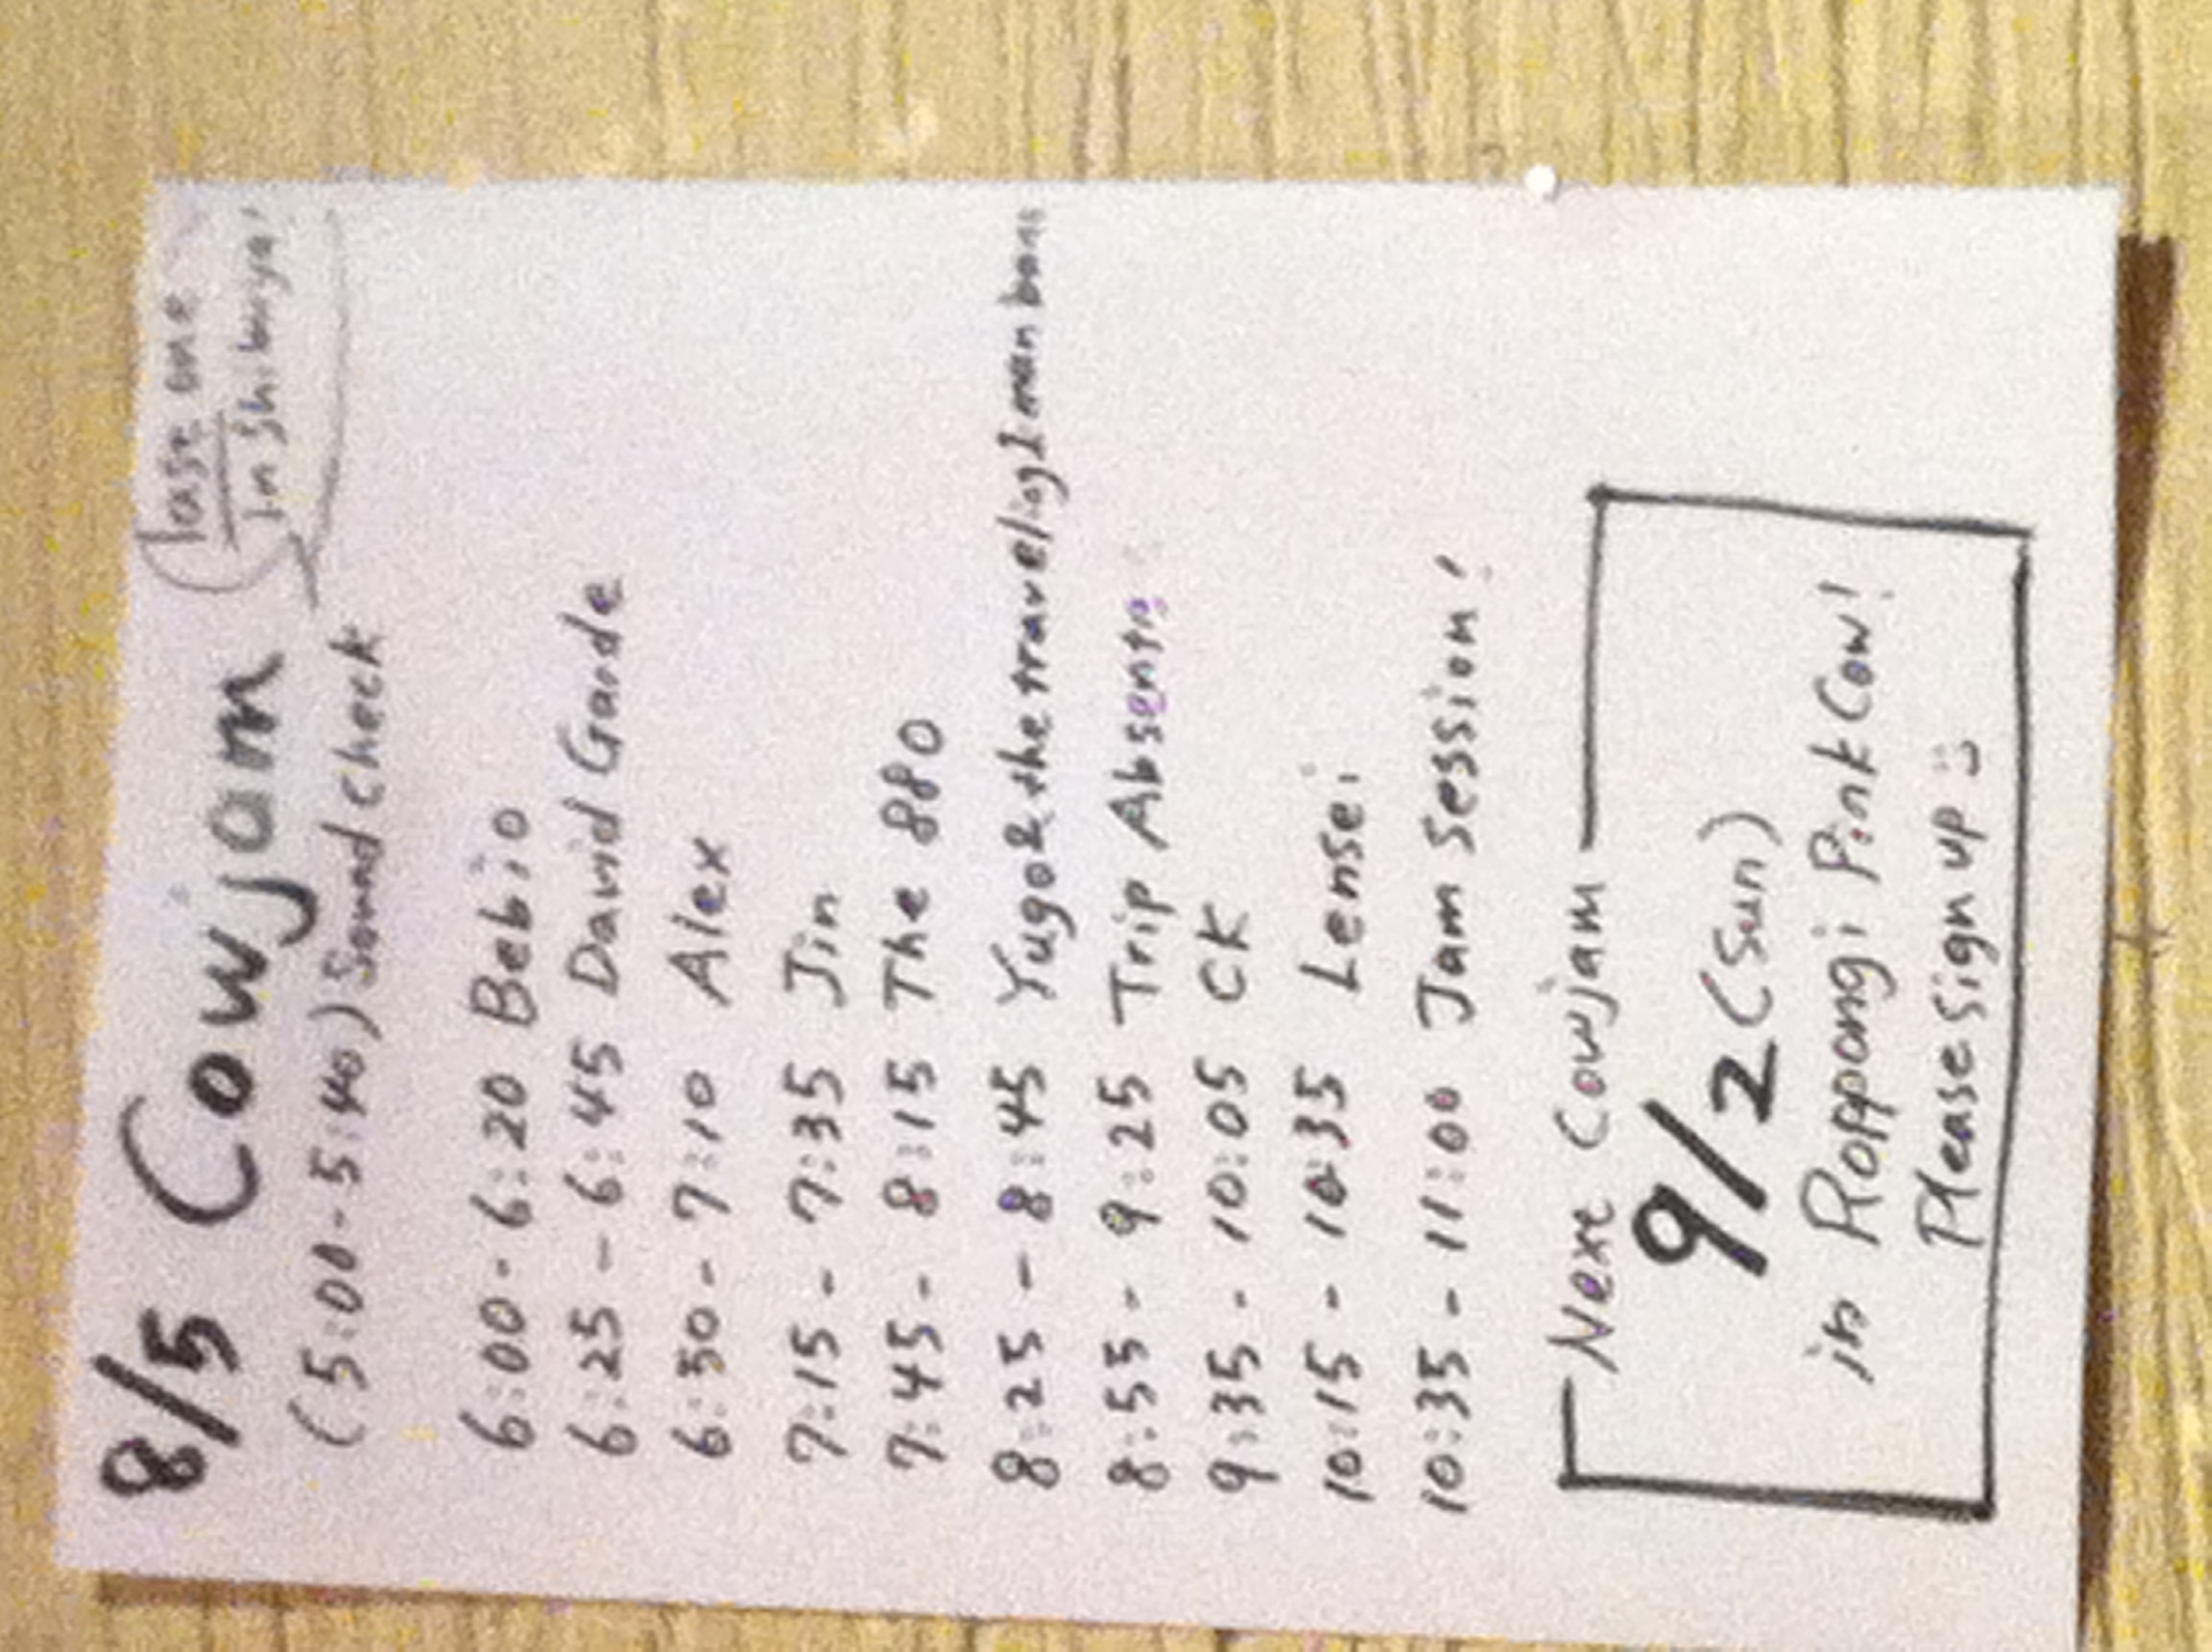 8/5 Cowjam
last one
in Shibuya!
(5:00-5:40) Sound Check
6:00 - 6:20 Bebio
6:25 - 6:45 David Garde
6:50 - 7:10 Alex
7:15 - 7:35 Jin
7:45 - 8:15 The 880
8:25 - 8:45 Yugo & the traveling 1 man
8:55 - 9:25 Trip Absente
9:35 - 10:05 CK
10:15 - 10:35 Lensei
10:35 - 11:00 Jam Session!
Next Cowjam
9/2 (Sun)
in Roppongi Pink Cow!
Please sign up